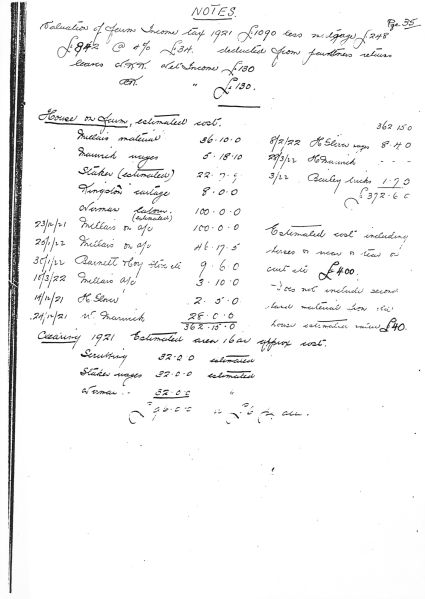 NOTES
Page 35
Valuation of farm Income tax 1921 £1090 less mortgage £248
£842 @ 4% £34. deducted from partners return
leaves Nett Income £130
" £130.
House on farm, estimated cost.
Millais material 36.10.0
Marwick wages 5.18.10
Staker (estimated) 22.7.
Kingston cartage 8.0.0
Norman labour (estimated) 100.0.0
23/12/21 Millars on a/c 100.0.0
20/1/22 Millars on a/c 46.17.5
30/1/22 Barnett 9.6.0
18/3/22 Millars a/c 3.10.0
19/12/21 H Stern 2.5.0
24/12/21 Marwick 28.0.0
362.15.0
362 15 0
8/2/22 H Stern wages 8.4.0
3/22 H Marwick - - -
3/22 Burley bricks 1.7.0
£372.6.0
Estimated cost including
horses or wear or tear on
cart etc £400.
Does not include second
hand material iron etc
house estimated value £40.
Clearing 1921 Estimated area 16ac approx cost.
Scrubbing 32.0.0 estimated
Staker wages 32.0.0 estimated
Norman " 32.0.0 "
£96.0.0 £6 per acre.